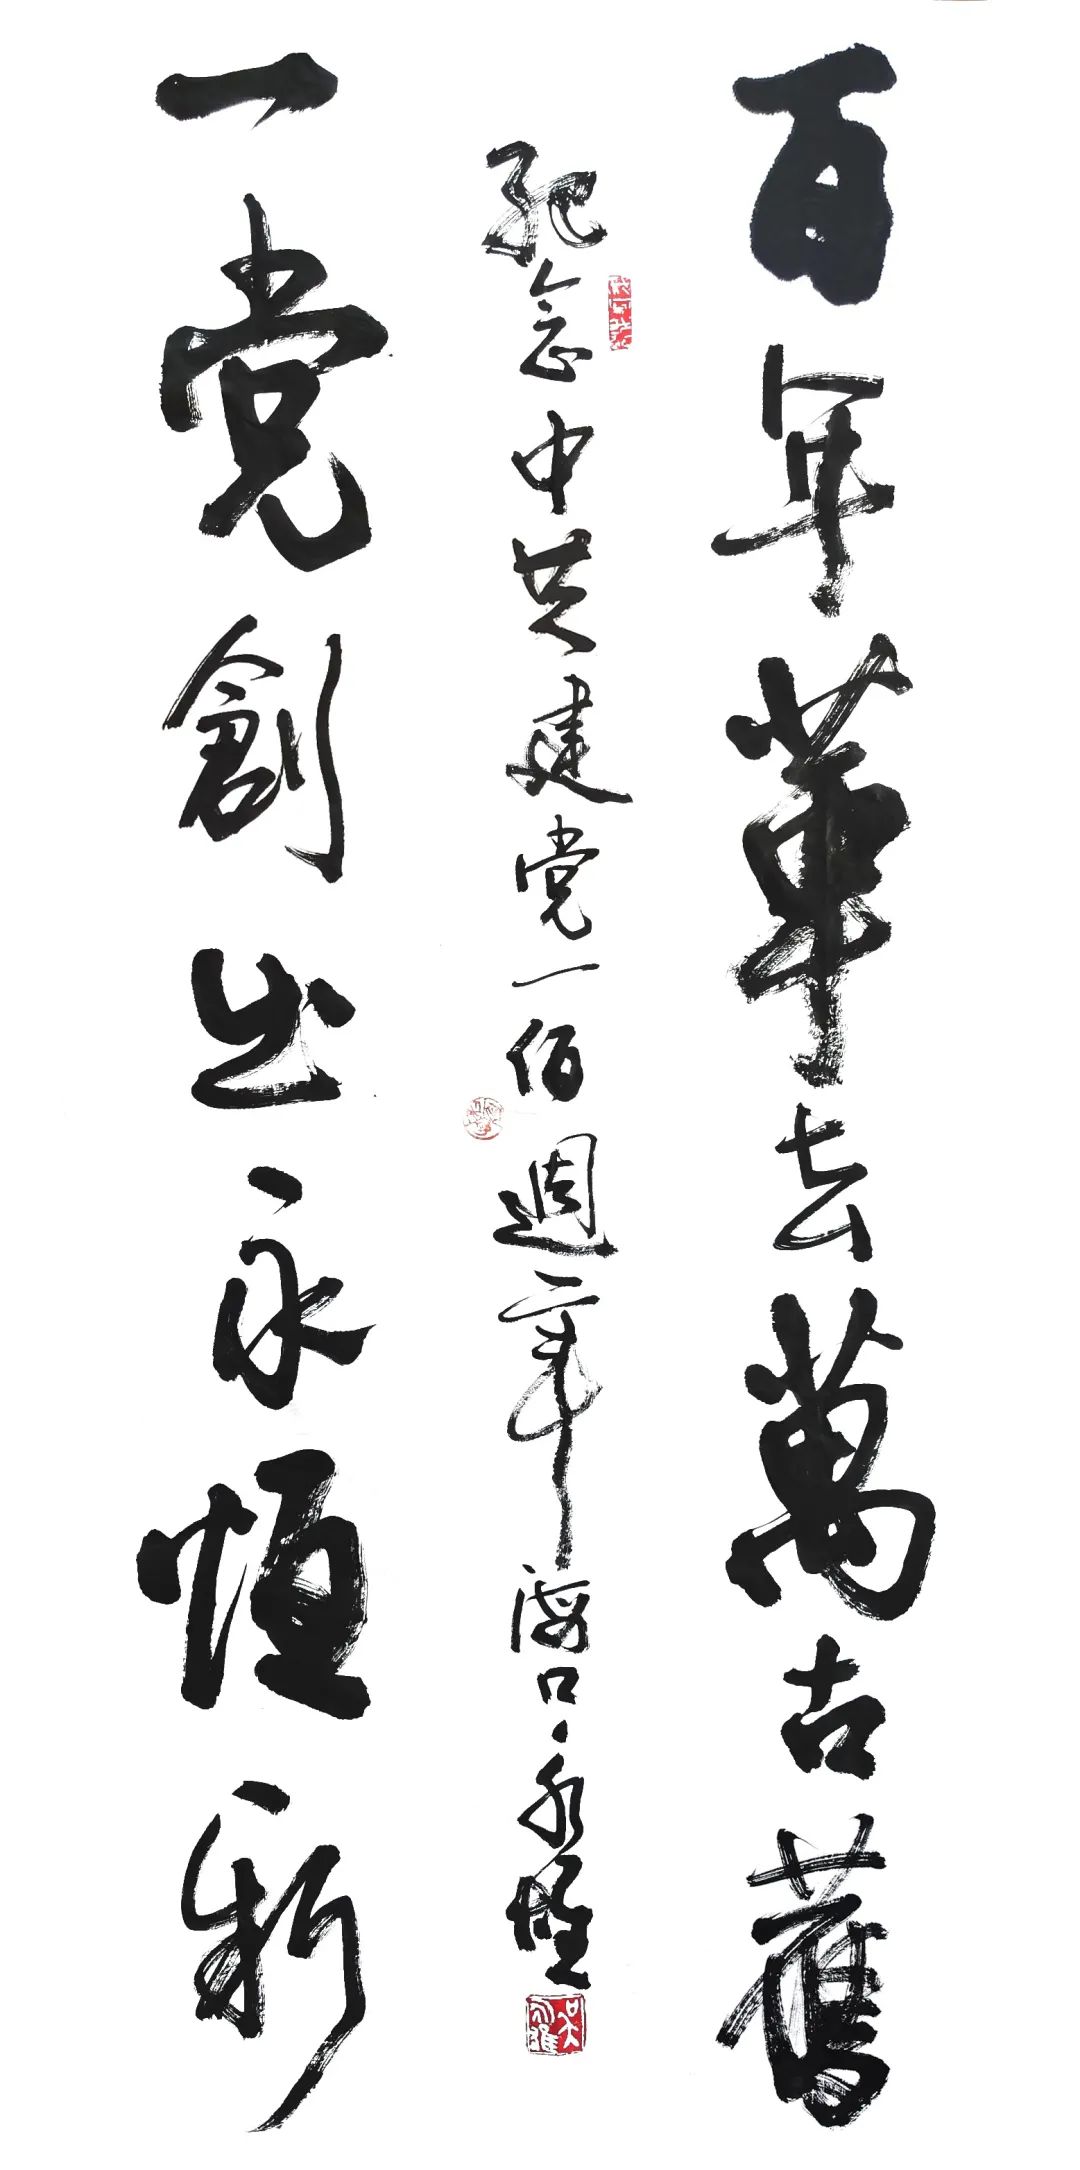 百年革去萬古舊
纪念中共建党一佰週年海口永
一党創出永恒新